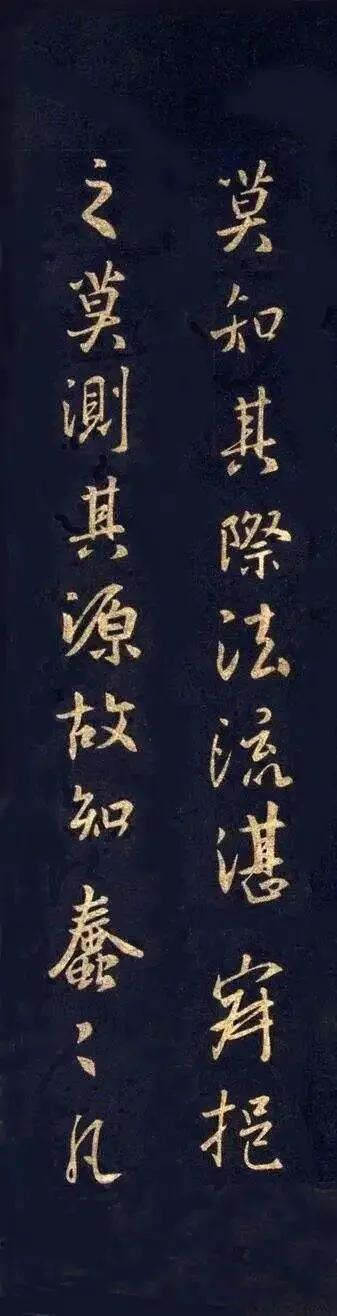 莫知其際法流湛寂挹
之莫測其源故知蠢〻凡